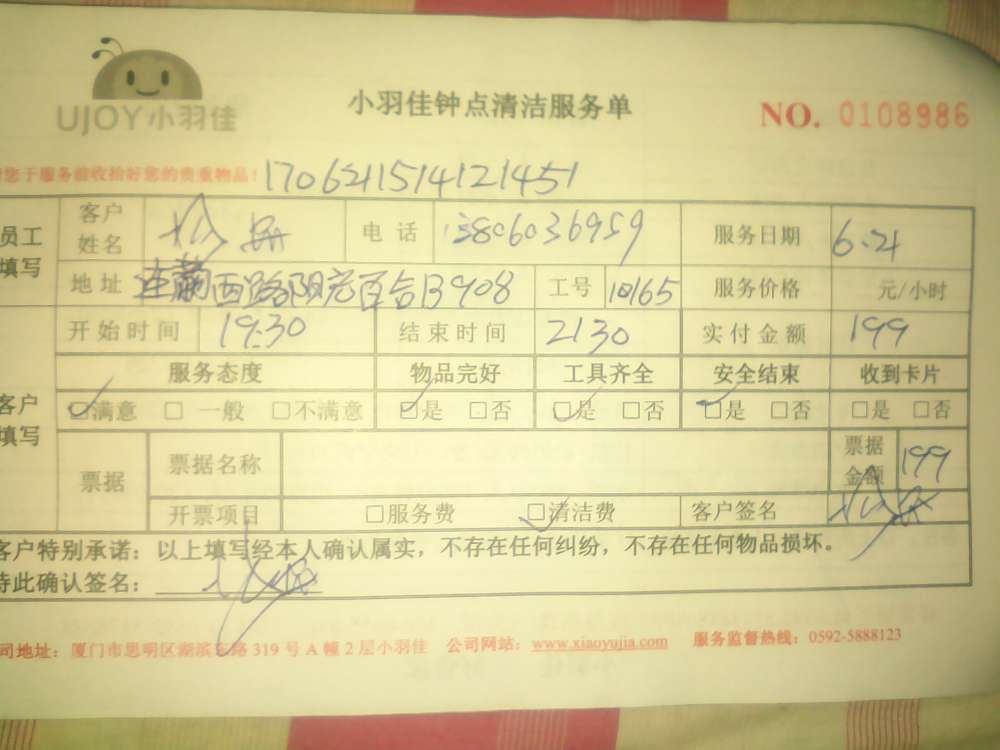 UJOY小羽佳
小羽佳钟点清洁服务单
NO. 0108986
您于服务前收拾好您的贵重物品! 1706211514121451
员工填写 客户姓名 电话 13806036959 服务日期 6.21
地址 莲前西路阳光百合B908 工号 10165 服务价格 元/小时
开始时间 19:30 结束时间 2130 实付金额 199
服务态度 物品完好 工具齐全 安全结束 收到卡片
客户填写 ☑满意 □一般 □不满意 ☑是 □否 ☑是 □否 ☑是 □否 □是 □否
票据 票据名称 票据金额 199
开票项目 □服务费 ☑清洁费 客户签名
客户特别承诺：以上填写经本人确认属实，不存在任何纠纷，不存在任何物品损坏。
特此确认签名：
司地址：厦门市思明区湖滨东路 319 号 A 幢 2 层小羽佳 公司网站：www.xiaoyujia.com 服务监督热线：0592-5888123